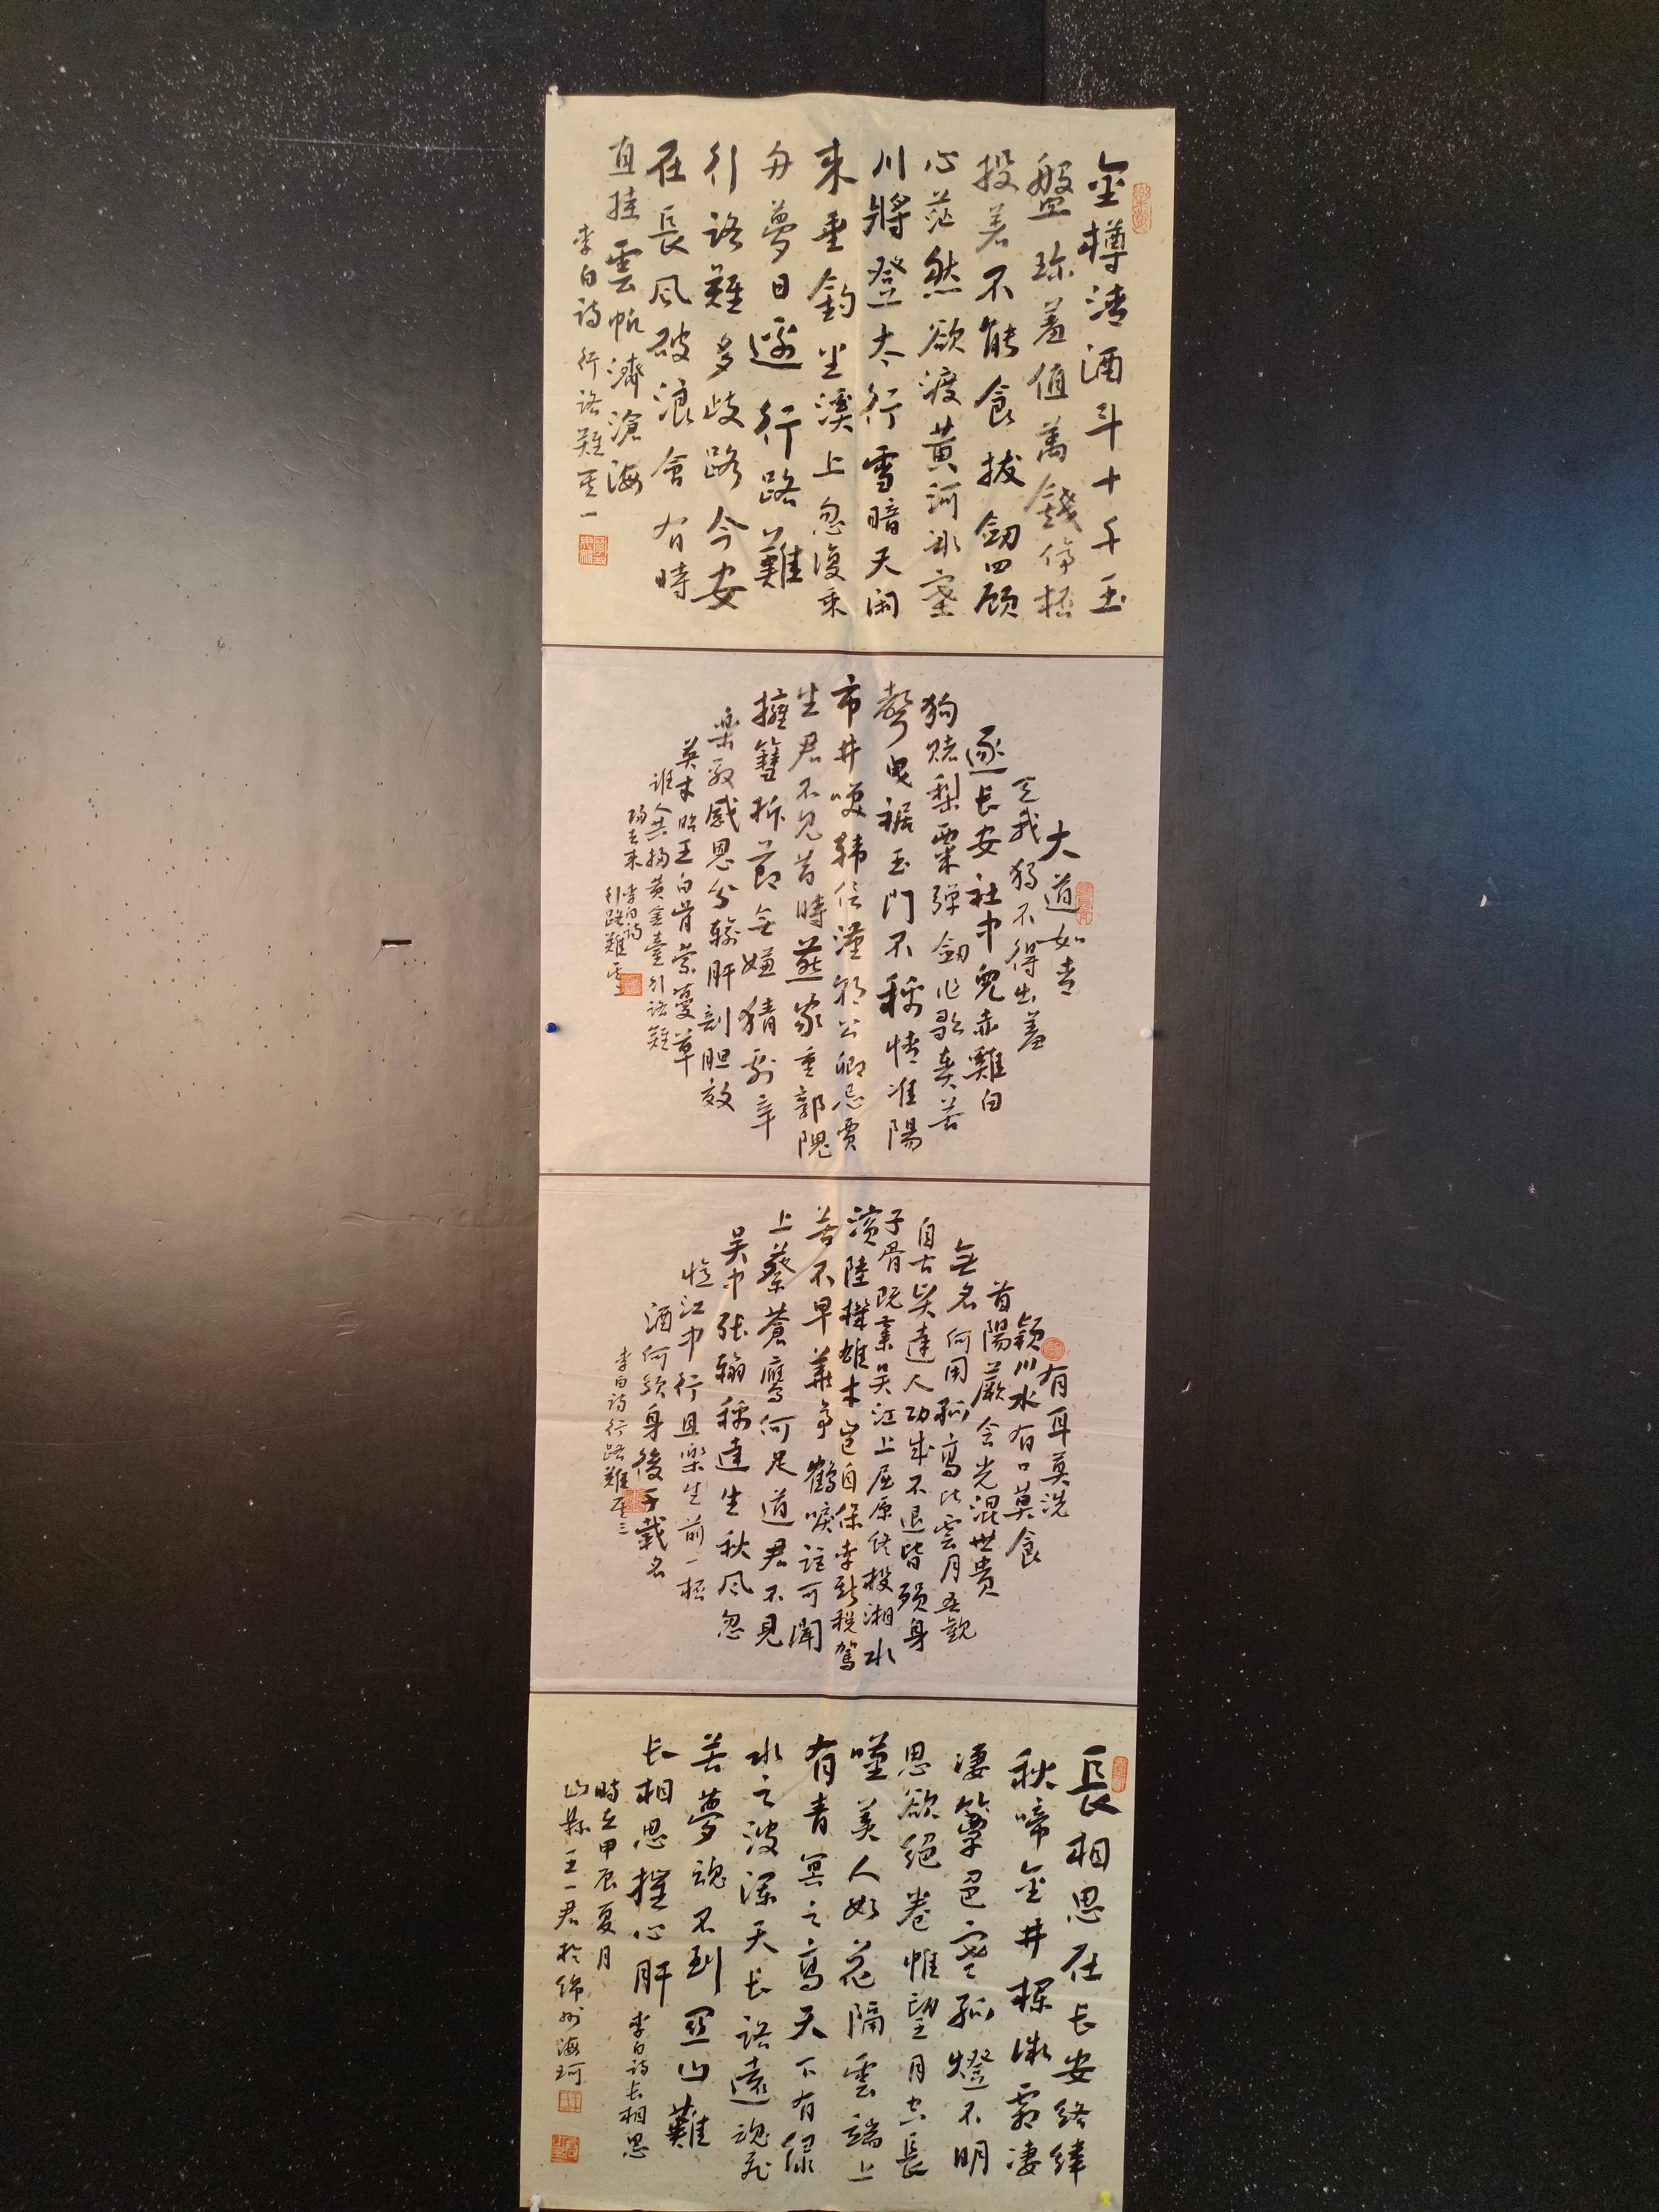 金樽清酒斗十千玉
盤珎羞值萬錢停杯
投箸不能食拔劒四顾
心茫然欲渡黄河冰塞
川將登太行雪暗天闲
來垂釣坐溪上忽復乘
舟夢日邊行路難
行路難多歧路今安
在長风破浪會有時
直挂雲帆濟滄海
李白诗行路難其一
大道如青
天我独不得出羞
逐长安社中兒赤雞白
狗赌梨栗弹劒作歌奏苦
聲曳裾王門不稱情淮陽
市井笑韩信漢朝公卿忌賈
生君不见昔時燕家重郭隗
擁篲折節無嫌猜剧辛
樂毅感恩分输肝剖胆效
英才昭王白骨萦蔓草
谁人共掃黄金臺行路難
歸去来 李白诗
行路難其二
有耳莫洗
颖川水有口莫食
首陽蕨含光混世贵
無名何用孤高比雲月吾觀
自古贤達人功成不退皆殒身
子胥既棄吴江上屈原终投湘水
濱陸機雄才豈自保李斯税駕
苦不早華亭鶴唳讵可闻
上蔡蒼鹰何足道君不見
吴中张翰稱達生秋风忽
憶江中行且樂生前一杯
酒何须身後千載名
李白诗行路難其三
長相思在长安络緯
秋啼金井欄微霜凄
凄簟色寒孤燈不明
思欲絕卷帷望月空長
嘆美人如花隔雲端上
有青冥之高天下有渌
水之波瀾天长路遠魂飛
苦夢魂不到關山難
长相思摧心肝 李白诗长相思
時在甲辰夏月
山縣王一君於锦州海珂